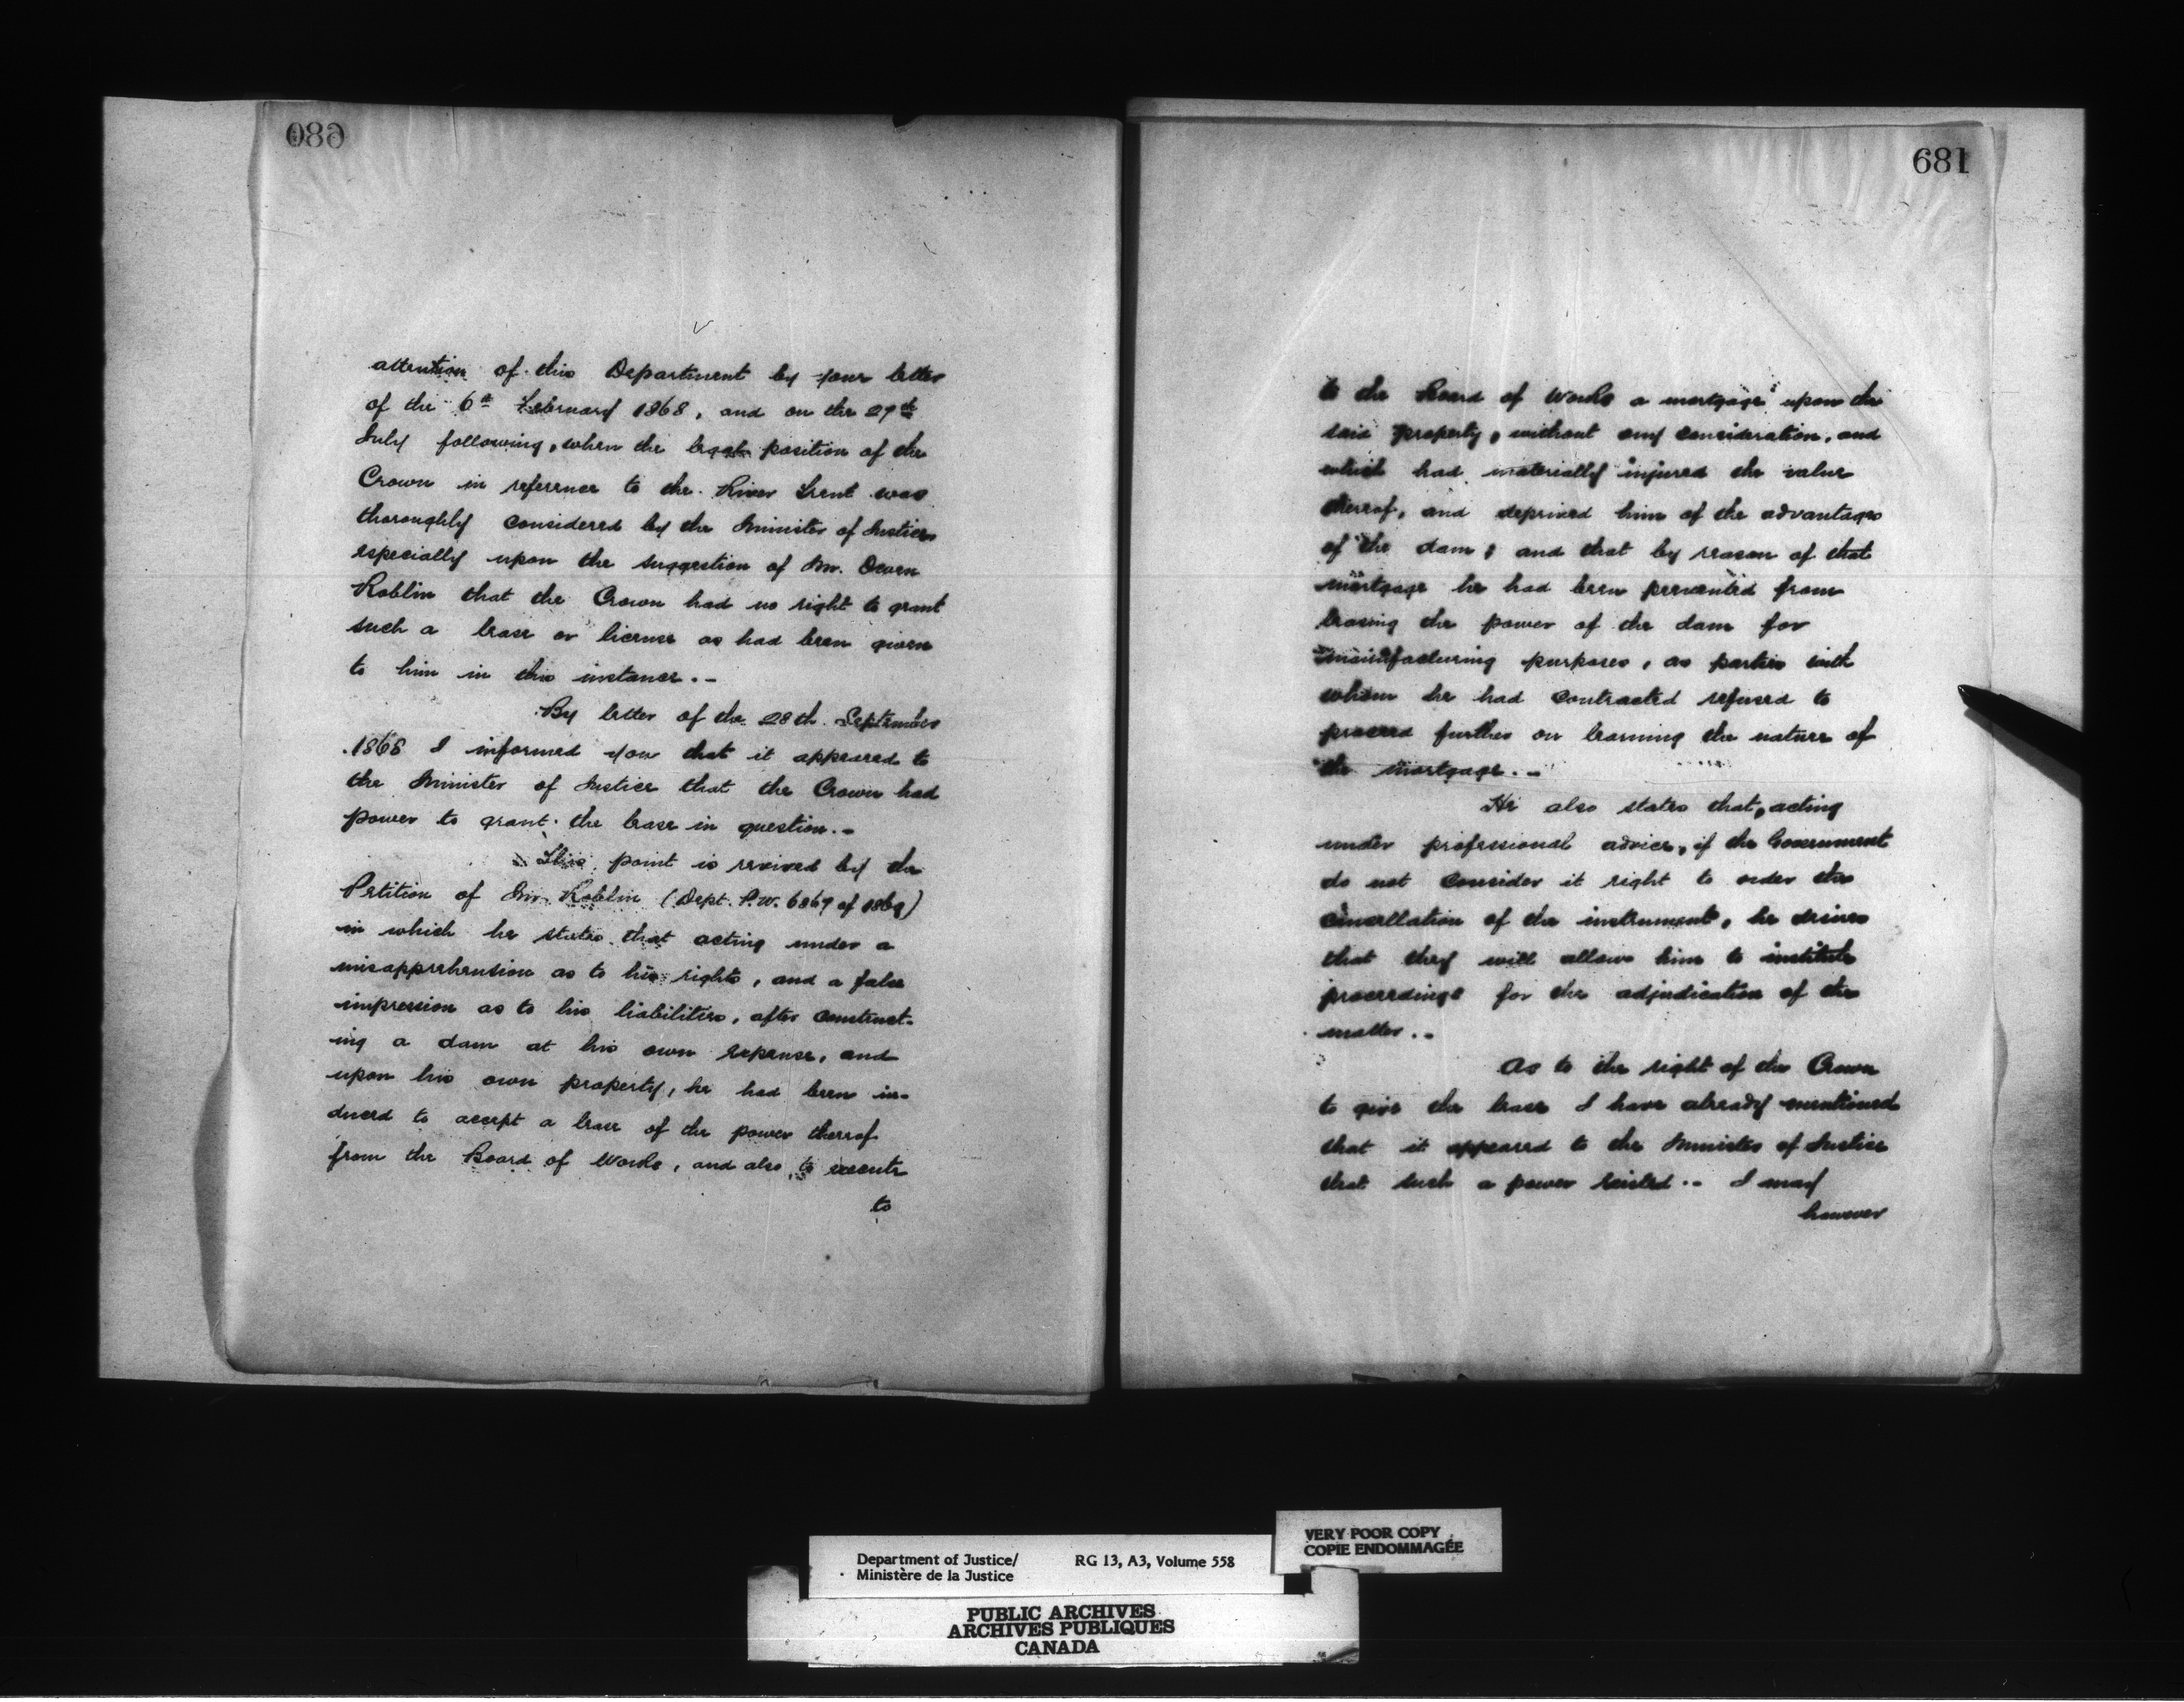 680
attention of this Department by your letter
of the 6th February 1868, and on the 29th
July following, when the legal position of the
Crown in reference to the River Trent was
thoroughly considered by the Minister of Justice
especially upon the suggestion of Mr. Owen
Roblin that the Crown had no right to grant
such a lease or license as had been given
to him in this instance.-
By letter of the 28th September
1868 I informed you that it appeared to
the Minister of Justice that the Crown had
power to grant the lease in question.-
This point is revived by the
Petition of Mr. Roblin (Dept. P.W. 6869 of 1869)
in which he states that acting under a
misapprehension as to his rights, and a false
impression as to his liabilities, after construct-
ing a dam at his own expense, and
upon his own property, he had been in-
duced to accept a lease of the power thereof
from the Board of Works, and also to execute
to
681
to the Board of Works a mortgage upon the
said property, without any consideration, and
which had materially injured the value
thereof, and deprived him of the advantages
of the dam; and that by reason of that
mortgage he had been prevented from
leasing the power of the dam for
manufacturing purposes, as parties with
whom he had contracted refused to
proceed further on learning the nature of
the mortgage.-
He also states that, acting
under professional advice, if the Government
do not consider it right to order the
cancellation of the instrument, he desires
that they will allow him to institute
proceedings for the adjudication of the
matter.-
As to the right of the Crown
to give the lease I have already mentioned
that it appeared to the Minister of Justice
that such a power existed.- I may
however
VERY POOR COPY
COPIE ENDOMMAGÉE
Department of Justice/ RG 13, A3, Volume 558
Ministère de la Justice
PUBLIC ARCHIVES
ARCHIVES PUBLIQUES
CANADA